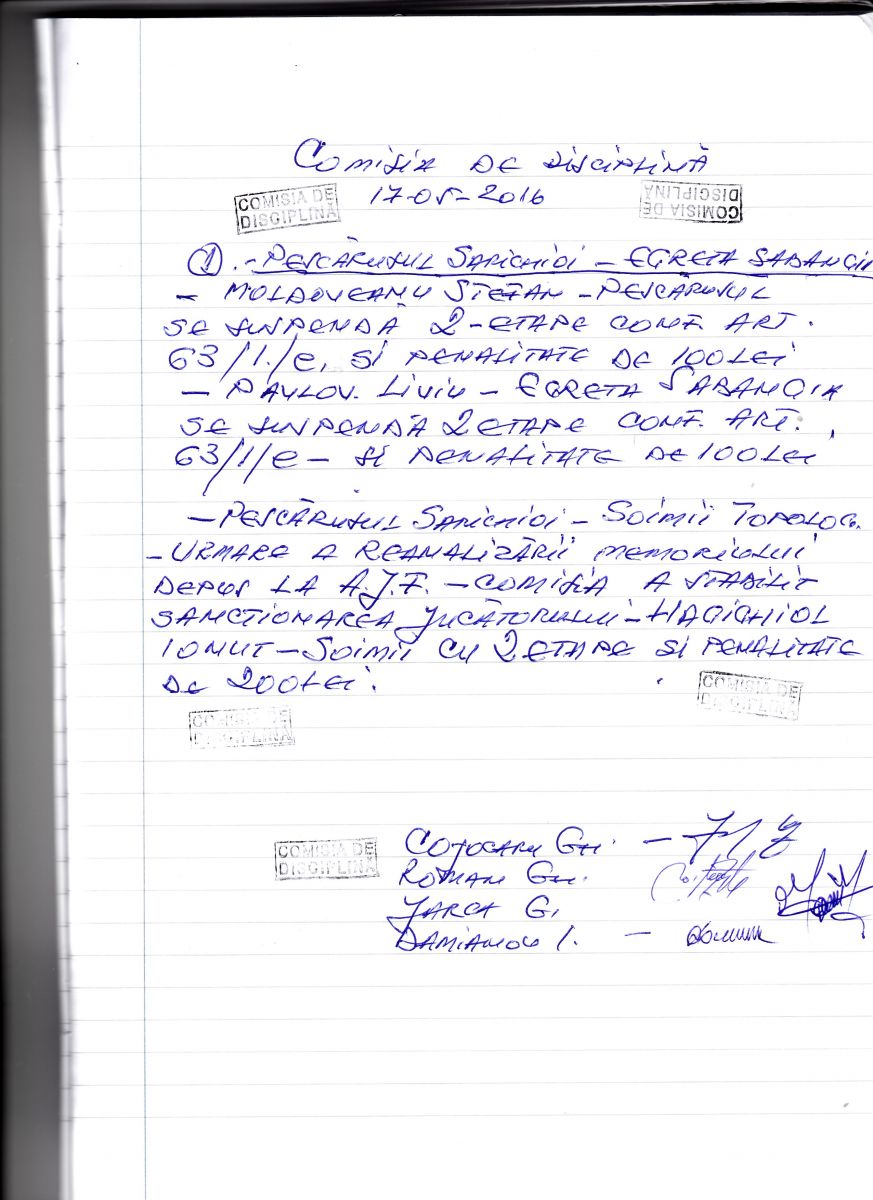 COMISIA DE DISCIPLINĂ
COMISIA DE
DISCIPLINĂ
17-05-2016
COMISIA DE
DISCIPLINĂ
① .- PESCĂRUSUL SARICHIOI - EGRETA SABANGIA
- MOLDOVEANU STEFAN - PESCĂRUSUL
SE SUSPENDĂ 2-ETAPE CONF. ART.
63/1./e, SI PENALITATE DE 100 LEI
- PAVLOV. LIVIU - EGRETA SABANGIA
SE SUSPENDĂ 2 ETAPE CONF. ART.
63/1/e - SI PENALITATE DE 100 LEI
- PESCĂRUSUL SARICHIOI - SOIMII TOPOLOG.
- URMARE A REANALIZĂRII MEMORIULUI
DEPUS LA A.J.F. - COMISIA A STABILIT
SANCTIONAREA JUCĂTORULUI - HAGICHIOL
IONUT - SOIMII CU 2 ETAPE SI PENALITATE
DE 200 LEI.
COMISIA DE
DISCIPLINĂ
COMISIA DE
DISCIPLINĂ
COMISIA DE
DISCIPLINĂ
COJOCARU GH. -
ROMAN GH.
JARCA G.
DAMIANOV I. -